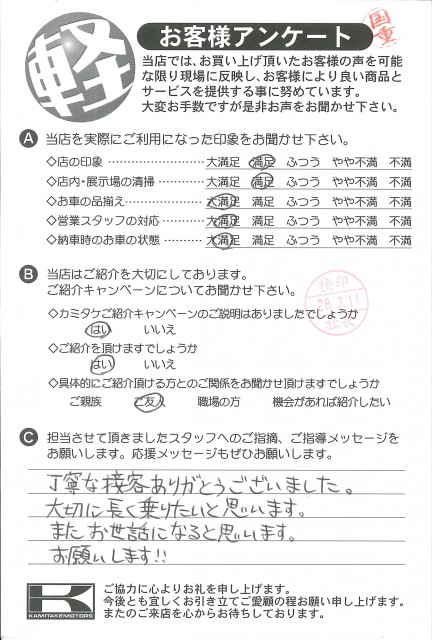 軽
お客様アンケート
国重
当店では、お買い上げ頂いたお客様の声を可能
な限り現場に反映し、お客様により良い商品と
サービスを提供する事に努めています。
大変お手数ですが是非お声をお聞かせ下さい。
A 当店を実際にご利用になった印象をお聞かせ下さい。
◇店の印象 …………………… 大満足 満足 ふつう やや不満 不満
◇店内・展示場の清掃 ………… 大満足 満足 ふつう やや不満 不満
◇お車の品揃え………………… 大満足 満足 ふつう やや不満 不満
◇営業スタッフの対応 ………… 大満足 満足 ふつう やや不満 不満
◇納車時のお車の状態 ………… 大満足 満足 ふつう やや不満 不満
B 当店はご紹介を大切にしております。
ご紹介キャンペーンについてお聞かせ下さい。
検印
28.3.11
社長
◇カミタケご紹介キャンペーンのご説明はありましたでしょうか
はい いいえ
◇ご紹介を頂けますでしょうか
はい いいえ
◇具体的にご紹介頂ける方とのご関係をお聞かせ頂けますでしょうか
ご親族 ご友人 職場の方 機会があれば紹介したい
C 担当させて頂きましたスタッフへのご指摘、ご指導メッセージを
お願いします。応援メッセージもぜひお願いします。
丁寧な接客ありがとうございました。
大切に長く乗りたいと思います。
またお世話になると思います。
お願いします!!
K
KAMITAKEMOTORS
ご協力に心よりお礼を申し上げます。
今後とも宜しくお引き立てご愛顧の程お願い申し上げます。
またのご来店を心からお待ちしております。